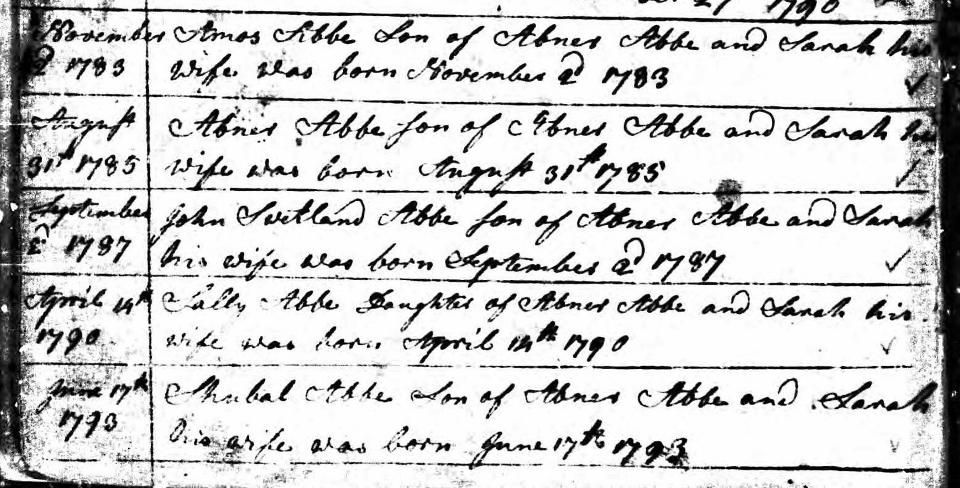 27 1790
November Amos Abbe Son of Abner Abbe and Sarah his
2d 1783 wife was born November 2d 1783
August Abner Abbe son of Abner Abbe and Sarah his
31st 1785 wife was born August 31st 1785
September John Swetland Abbe son of Abner Abbe and Sarah
2d 1787 his wife was born September 2d 1787
April 14th Sally Abbe Daughter of Abner Abbe and Sarah his
1790 wife was born April 14th 1790
June 17th Shubal Abbe Son of Abner Abbe and Sarah
1793 his wife was born June 17th 1793